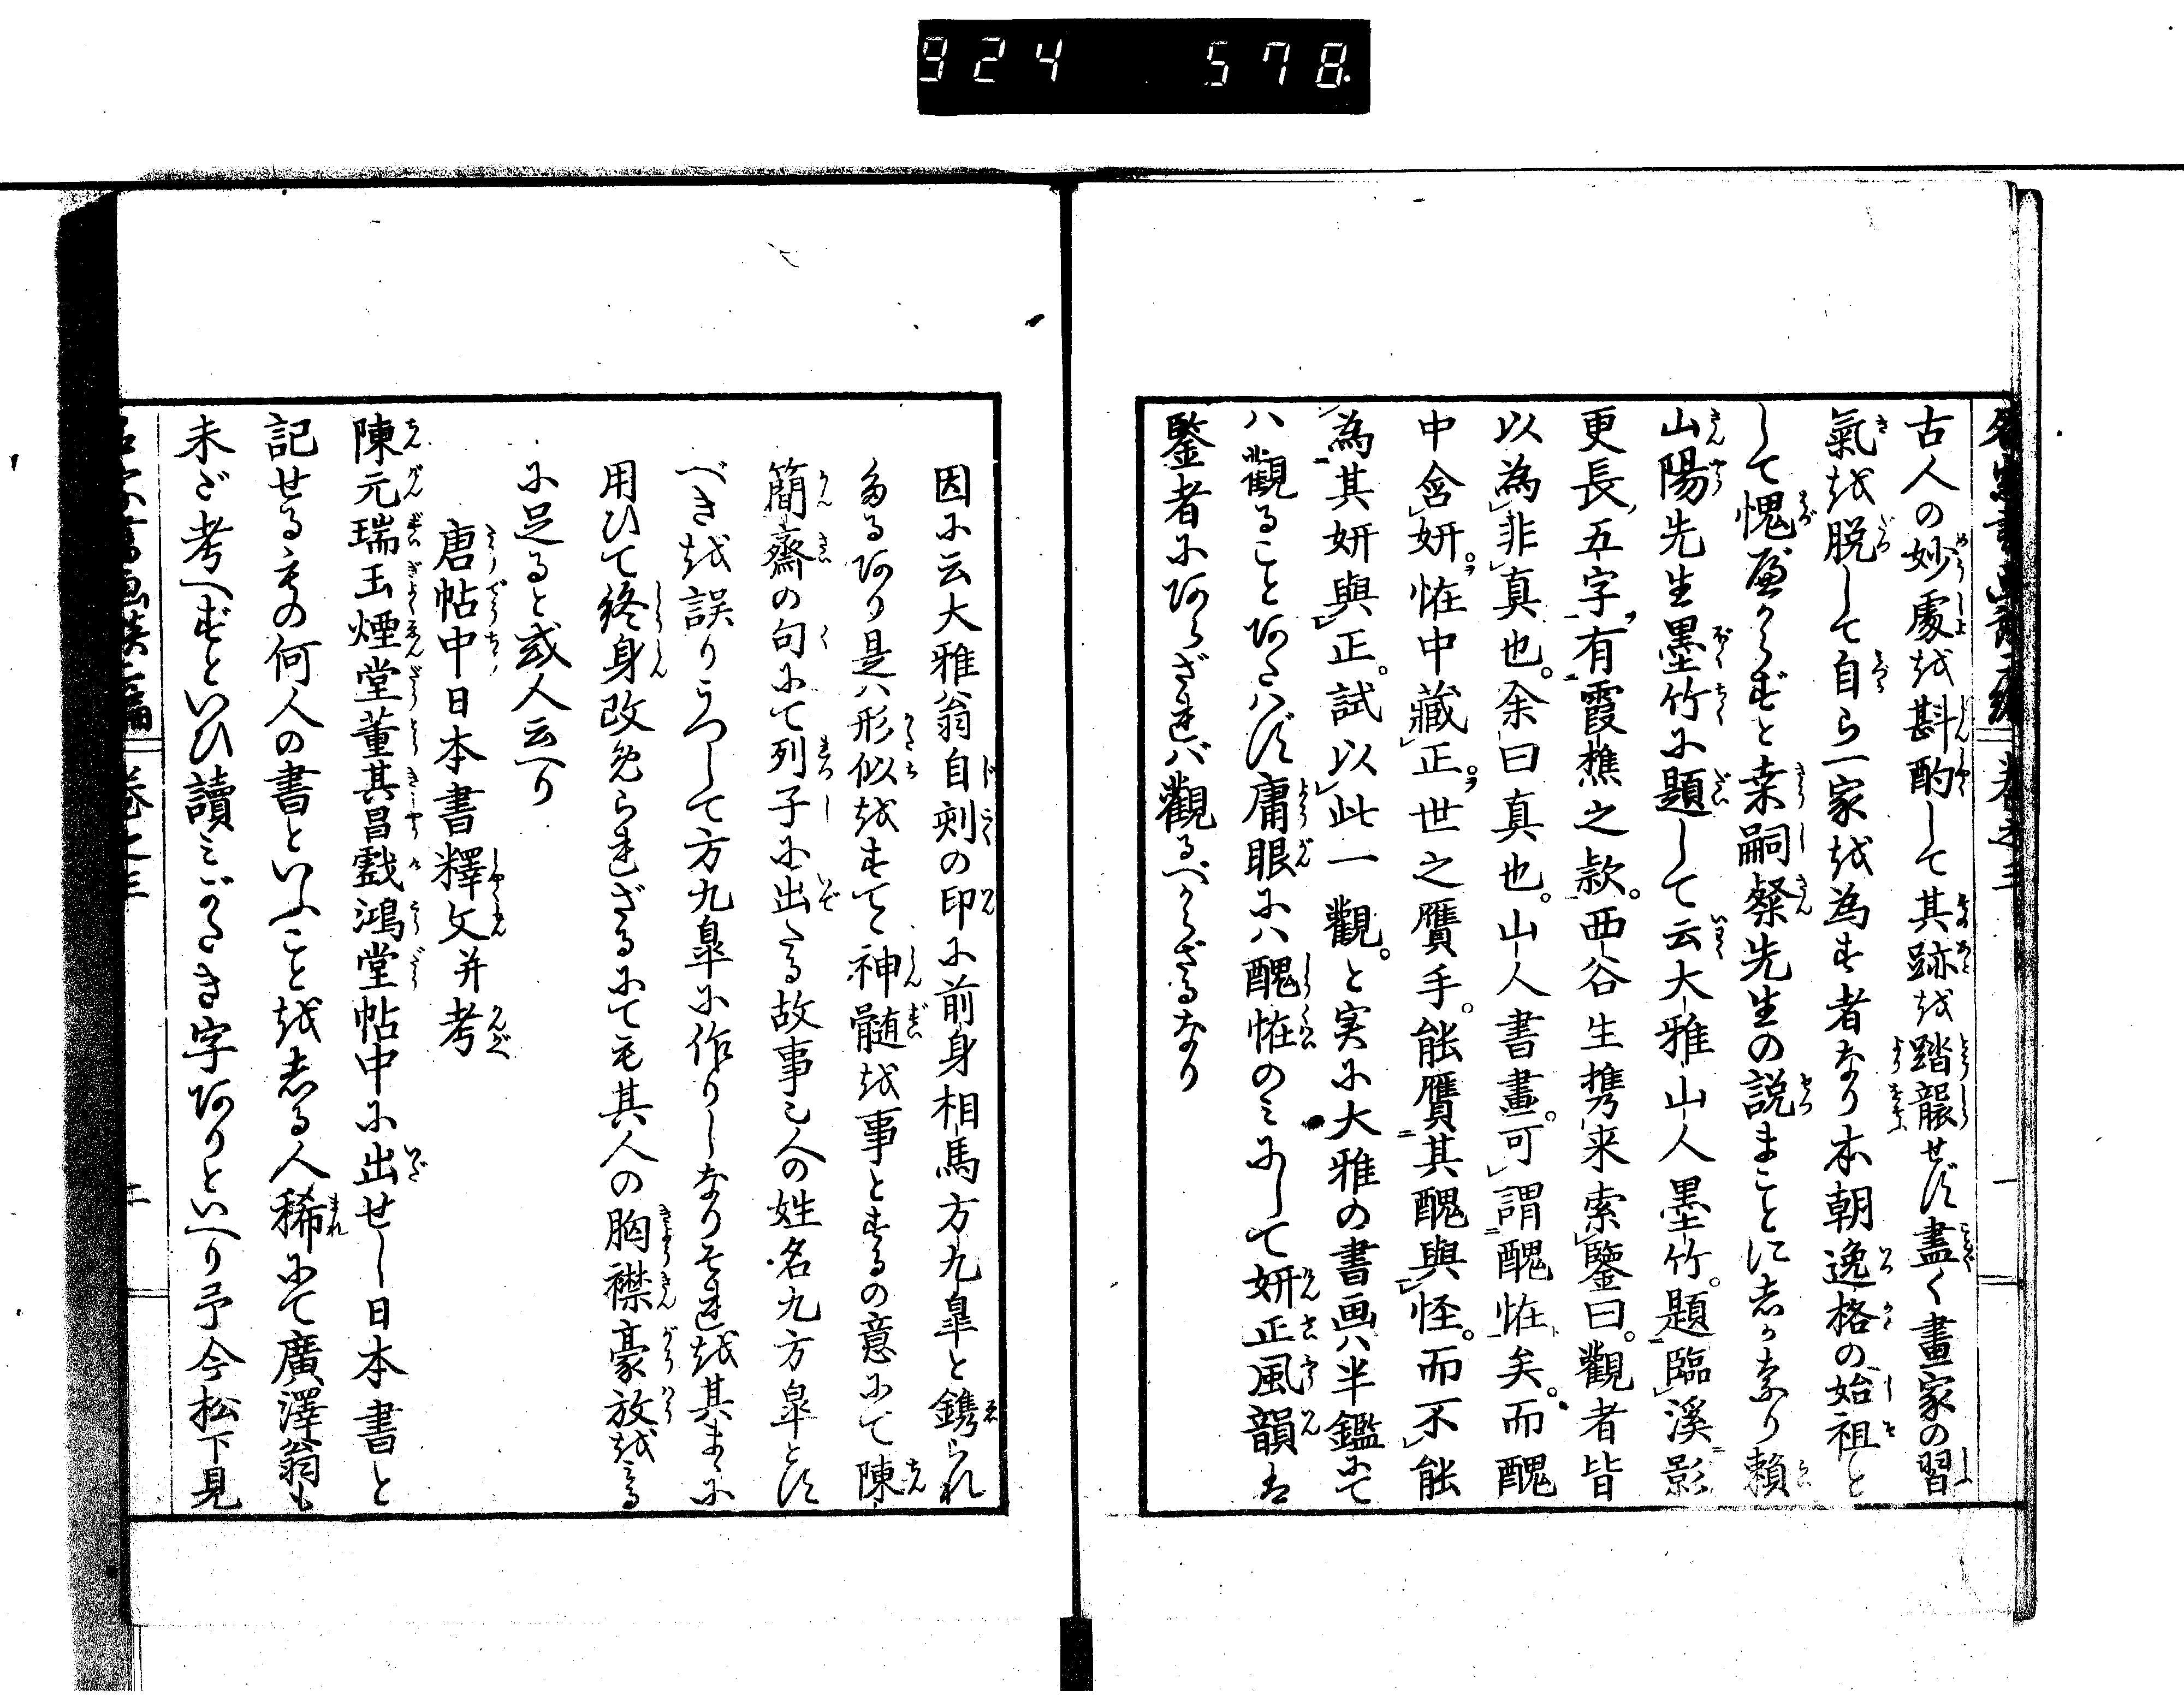 924 578.
古人の妙處を斟酌して其跡を踏襲せず盡く畫家の習
氣を脱して自ら一家を為す者なり本朝逸格の始祖と
して愧べからずと桒嗣粲先生の説まことにしかなり頼
山陽先生墨竹に題して云大雅山人墨竹。題臨溪影
更長五字有霞樵之款。西谷生携来索鑒曰。觀者皆
以為非真也。余曰真也。山人書畫。可謂醜恠矣。而醜
中含妍。恠中藏正。世之贋手。能贋其醜與怪。而不能
為其妍與正。試以此一觀。と実に大雅の書画ハ半鑑にて
ハ觀ることあたハず庸眼にハ醜恠のミにして妍正風韻は
鑒者にあらざれバ觀るべからざるなり
因に云大雅翁自刻の印に前身相馬方九皐と鐫られ
たるあり是ハ形似をすてゝ神髄を事とするの意にて陳
簡齋の句にて列子に出たる故事也人の姓名九方皐とす
べきを誤りうつして方九皐に作りしなりそれを其まゝに
用ひて終身改免られざるにても其人の胸襟豪放を見る
に足ると或人云へり
唐帖中日本書釋文并考
陳元瑞玉煙堂董其昌戲鴻堂帖中に出せし日本書と
記せるもの何人の書といふことをしる人稀にて廣澤翁も
未だ考へずといひ讀ミがたき字ありといへり予今松下見